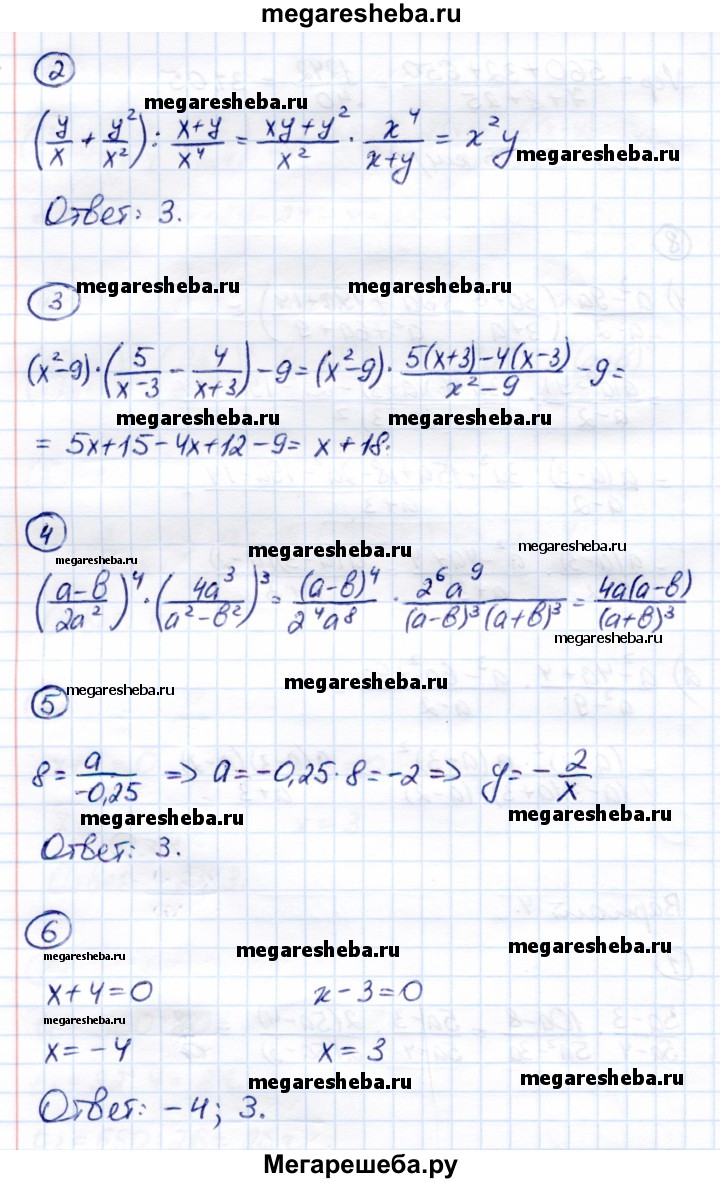 megaresheba.ru
2
megaresheba.ru
(y/x + y²/x²) : (x+y)/x⁴ = (xy+y²)/x² · x⁴/(x+y) = x²y
megaresheba.ru
Ответ: 3.
megaresheba.ru megaresheba.ru
3
(x²-9)·(5/(x-3) - 4/(x+3)) - 9 = (x²-9) · (5(x+3)-4(x-3))/(x²-9) - 9 =
megaresheba.ru megaresheba.ru
= 5x+15-4x+12-9= x+18.
4
megaresheba.ru megaresheba.ru megaresheba.ru
((a-в)/2a²)⁴ · (4a³/(a²-в²))³ = (a-в)⁴/2⁴a⁸ · 2⁶a⁹/((a-в)³(a+в)³) = 4a(a-в)/(a+в)³
megaresheba.ru
5
megaresheba.ru megaresheba.ru
8 = a/-0,25 => a=-0,25·8=-2 => y=-2/x
megaresheba.ru megaresheba.ru
Ответ: 3.
6
megaresheba.ru megaresheba.ru megaresheba.ru
x+4=0 x-3=0
megaresheba.ru
x=-4 x=3
megaresheba.ru megaresheba.ru
Ответ: -4; 3.
Мегарешеба.ру